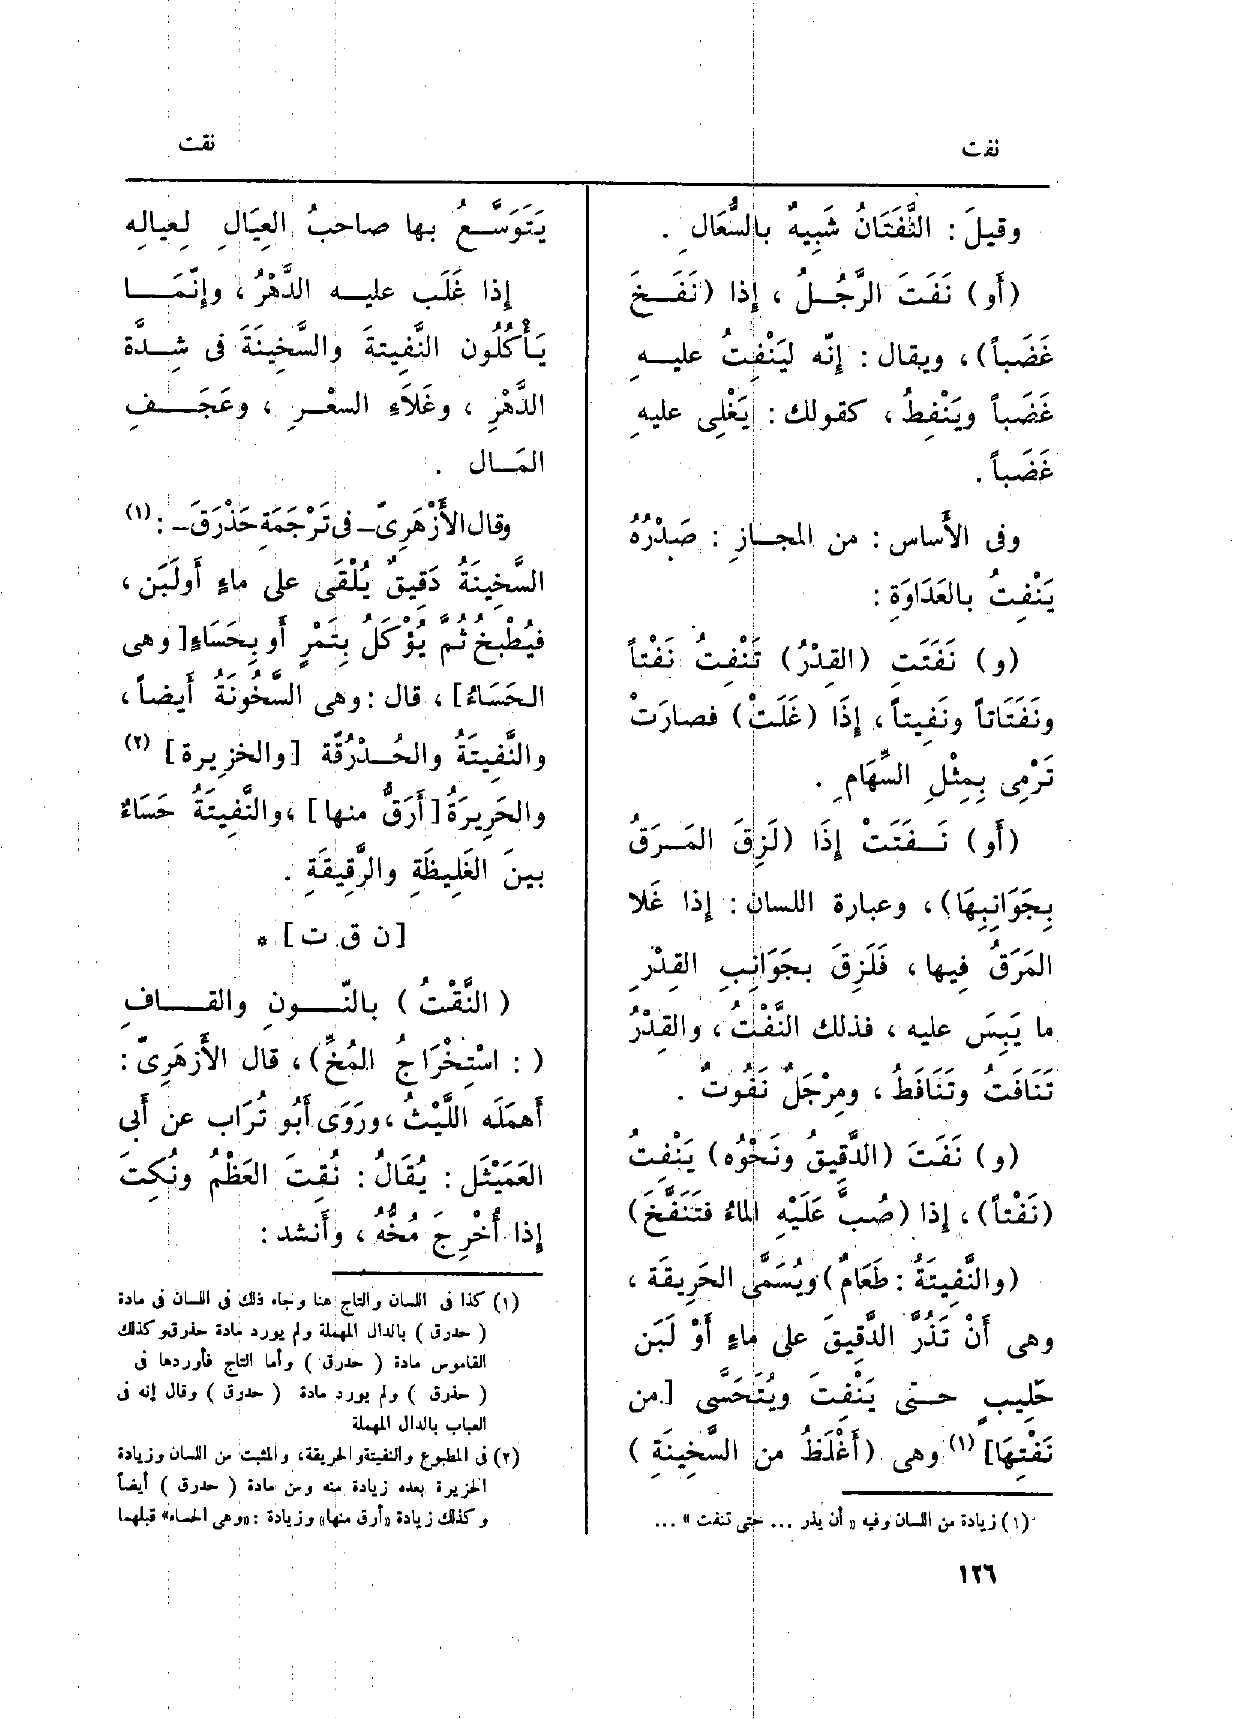 نفت
نقت
وقيلَ : النَّفَتَانُ شَبِيهٌ بالسُّعَالِ .
(أَو) نَفَتَ الرَّجُلُ ، إِذا (نَفَخَ
غَضَباً) ، ويقال : إِنَّه ليَنْفِتُ عليهِ
غَضَباً ويَنْفِطُ ، كقولك : يَغْلِى عليهِ
غَضَباً .
وفى الأَساس : من المجازِ : صَدْرُهُ
يَنْفِتُ بالعَدَاوَةِ :
(و) نَفَتَت (القِدْرُ) تَنْفِتُ نَفْتاً
ونَفَتَاناً ونَفِيتاً ، إِذَا (غَلَتْ) فصارَتْ
تَرْمِى بِمِثْلِ السِّهَامِ .
(أَو) نَفَتَتْ إِذَا (لَزِقَ المَرَقُ
بِجَوَانِبِهَا) ، وعبارة اللسان : إِذا غَلَا
المَرَقُ فِيها ، فَلَزِقَ بجَوَانِبِ القِدْرِ
ما يَبِسَ عليه ، فذلك النَّفْتُ ، والقِدْرُ
تَنَافَتُ وتَنَافَطُ ، ومِرْجَلٌ نَفُوتٌ .
(و) نَفَتَ (الدَّقِيقُ ونَحْوُه) يَنْفِتُ
(نَفْتاً) ، إِذا (صُبَّ عَلَيْهِ الماءُ فَتَنَفَّخَ)
(والنَّفِيتَةُ : طَعَامٌ) ويُسَمَّى الحَرِيقَة ،
وهى أَنْ تَذُرَّ الدَّقِيقَ على مَاءٍ أَوْ لَبَنٍ
حَلِيبٍ حتى يَنْفِتَ ويُتَحَسَّى [من
نَفْتِهَا] (١) وهى (أَغْلَظُ من السَّخِينَةِ )
(١) زيادة من اللسان وفيه « أن يذر ... حتى تنفت » ...
يَتَوَسَّعُ بها صاحبُ العِيَالِ لِعِيالِه
إِذا غَلَب عليه الدَّهْرُ ، وإِنَّمَا
يَأْكُلُون النَّفِيتةَ والسَّخِينَةَ فى شِدَّة
الدَّهْرِ ، وغَلَاءِ السعْرِ ، وعَجَفِ
المَال .
وقال الأَزْهَرِىّ - فى تَرْجَمَةِ حَذْرَقَ - : (١)
السَّخِينَةُ دَقِيقٌ يُلْقَى على ماءٍ أَو لَبَنٍ ،
فيُطْبخُ ثُمَّ يُؤْكَلُ بِتَمْرٍ أَو بِحَسَاءٍ [ وهى
الحَسَاءُ ] ، قال : وهى السَّخُونَةُ أَيضاً ،
والنَّفِيتَةُ والحُدْرُقَّة [والخزِيرة] (٢)
والحَرِيرَةُ [ أَرَقُّ منها ] ، والنَّفِيتَةُ حَسَاءٌ
بينَ الغَلِيظَةِ والرَّقِيقَةِ .
[ن ق ت] *
( النَّقْتُ ) بالنّونِ والقافِ
( : اسْتِخْرَاجُ المُخِّ) ، قال الأَزهَرِىّ :
أَهمَلَه اللَّيْثُ ، ورَوَى أَبُو تُرَاب عن أَبى
العَمَيْثَل : يُقَالُ : نُقِتَ العَظْمُ ونُكِتَ
إِذا أُخْرِجَ مُخُّه ، وأَنشد :
(١) كذا فى اللسان والتاج هنا وجاء ذلك فى اللسان فى مادة
( حدرق ) بالدال المهملة ولم يورد مادة حذرق وكذلك
القاموس مادة ( حدرق ) وأما التاج فأوردها فى
( حذرق ) ولم يورد مادة ( حدرق ) وقال إنه فى
العباب بالدال المهملة
(٢) فى المطبوع والنفيتة والحريقة، والمثبت من اللسان وزيادة
الخزيرة بعده زيادة منه ومن مادة ( حدرق ) أيضاً
وكذلك زيادة «أرق منها» وزيادة : «وهى الحساء» قبلهما
١٢٦